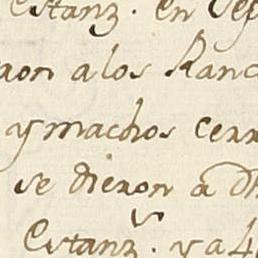 Estanz. en Sep
ron a los Ranc
y machos cerr
se dieron a Dh
Estanz.ˢ y a 4